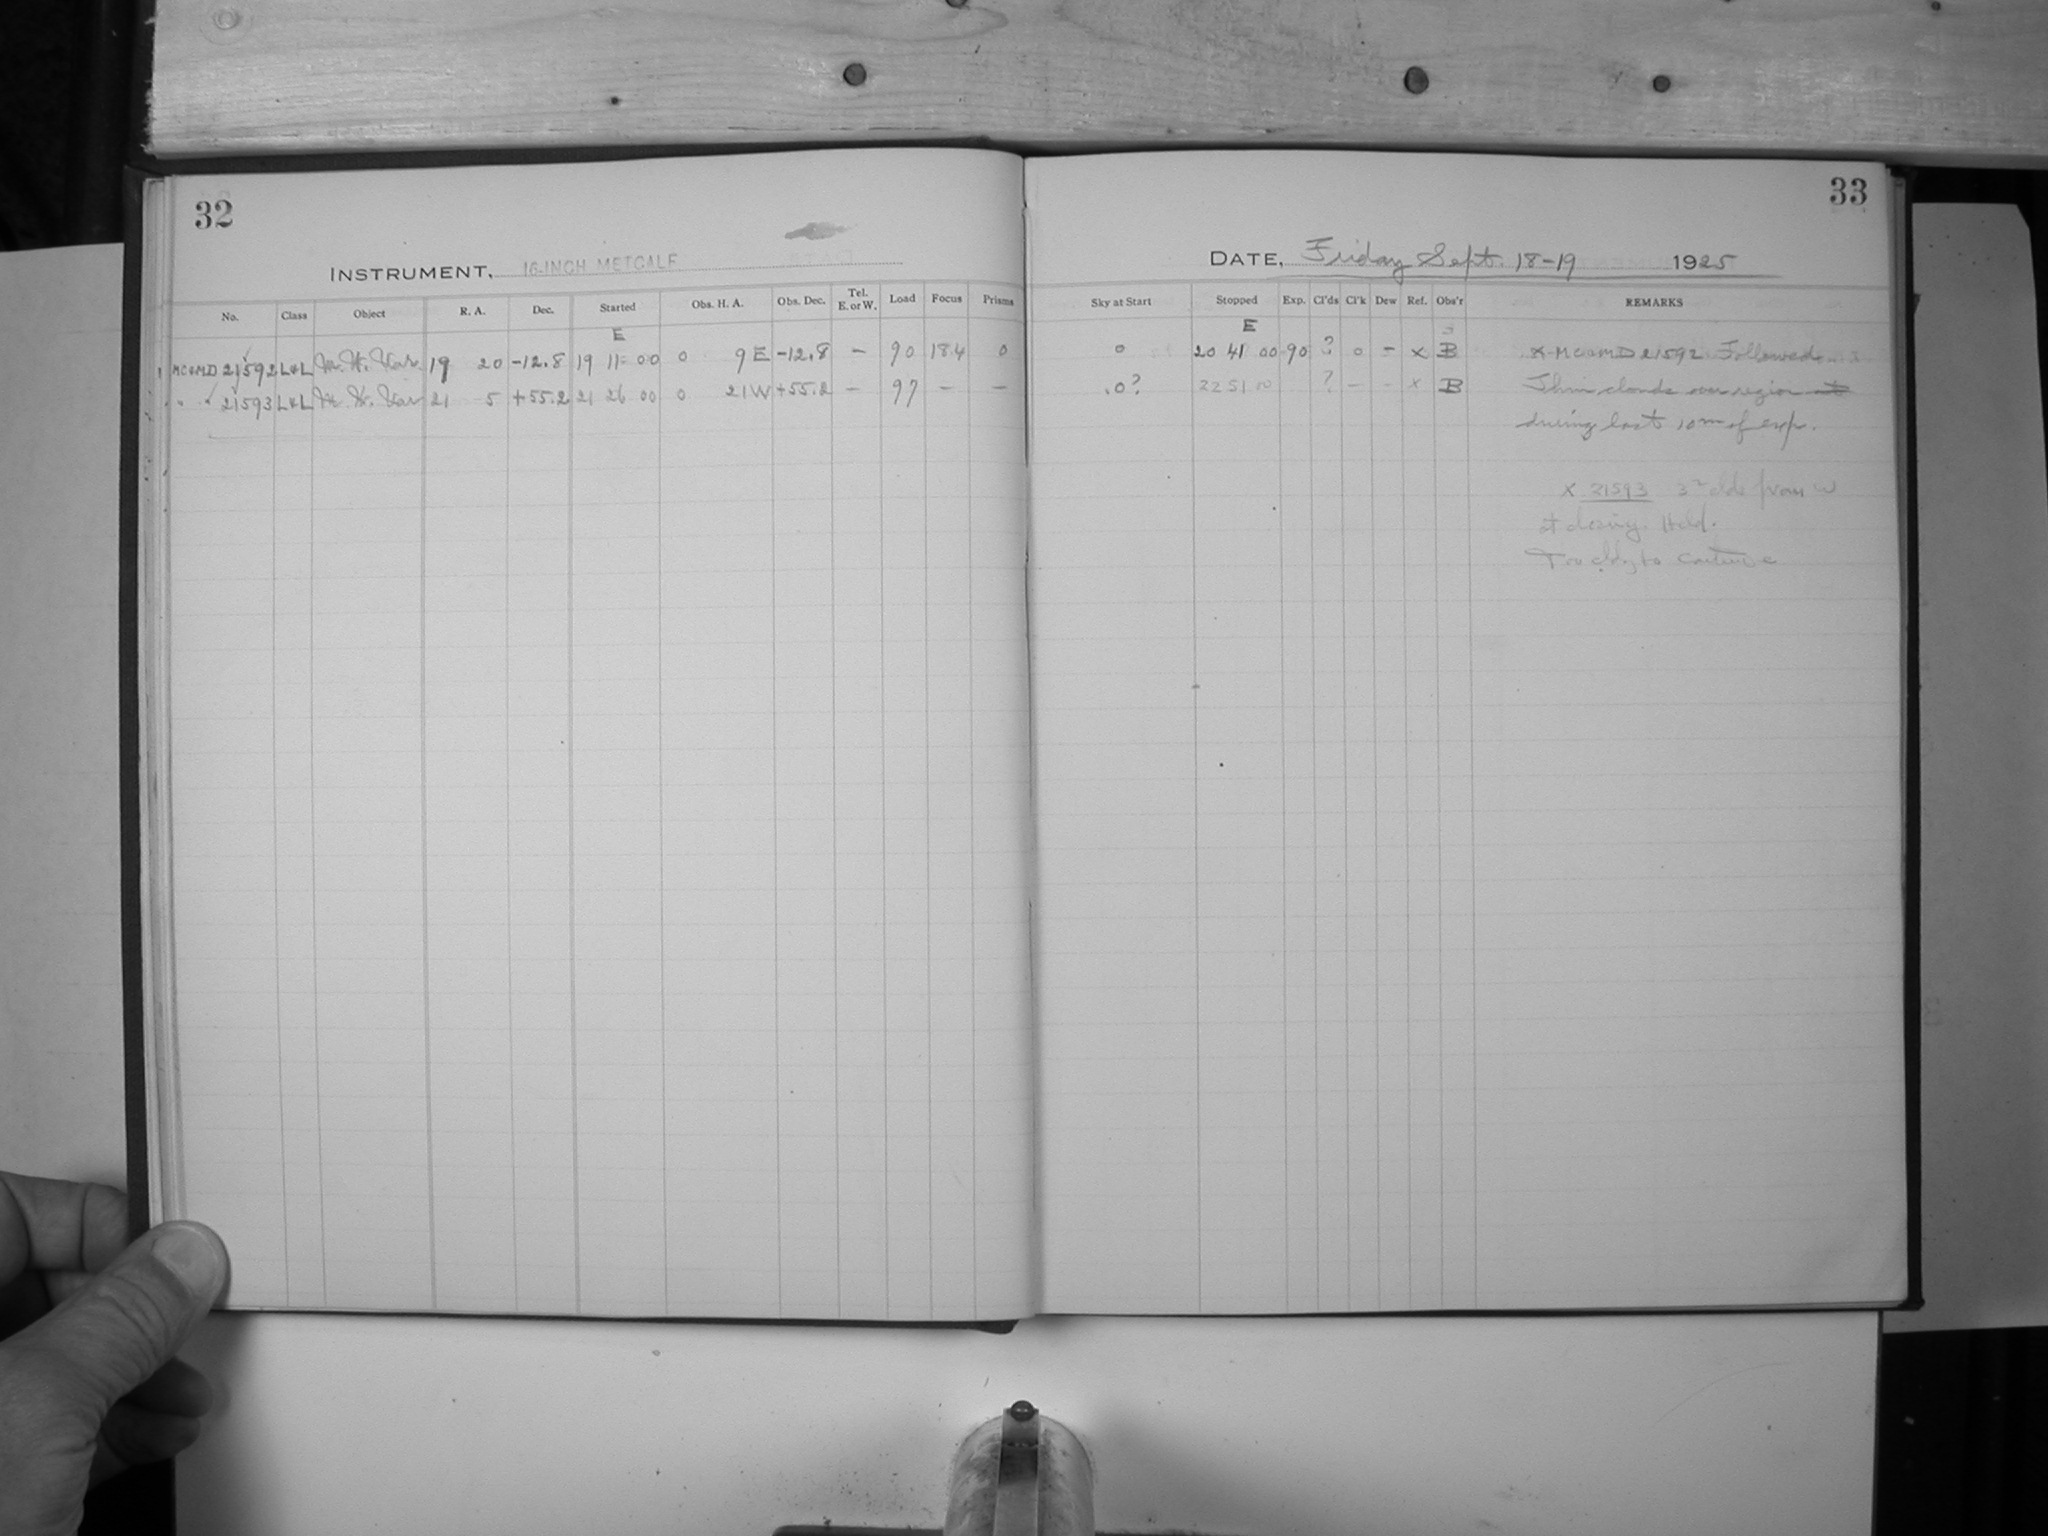 32
INSTRUMENT, 16-INCH METCALF
No. Class Object R. A. Dec. Started Obs. H. A. Obs. Dec. Tel. E. or W. Load Focus Prisms
E
MC&MD 21592 L&L M.W. Var. 19 20 -12.8 19 11 00 0 9 E -12.8 - 90 18.4 0
" " 21593 L&L M.W. Var 21 5 +55.2 21 26 00 0 21 W +55.2 - 97 - -
33
DATE, Friday Sept. 18-19 1925
Sky at Start Stopped Exp. Cl'ds Cl'k Dew Ref. Obs'r REMARKS
E
0 20 41 00 90 ? 0 - x B x MC&MD 21592 Followed
.0? 22 51 10 ? - - x B Thin clouds over region
during last 10m of exp.
x 21593 clds from W
at closing. Held.
Too cldy to continue